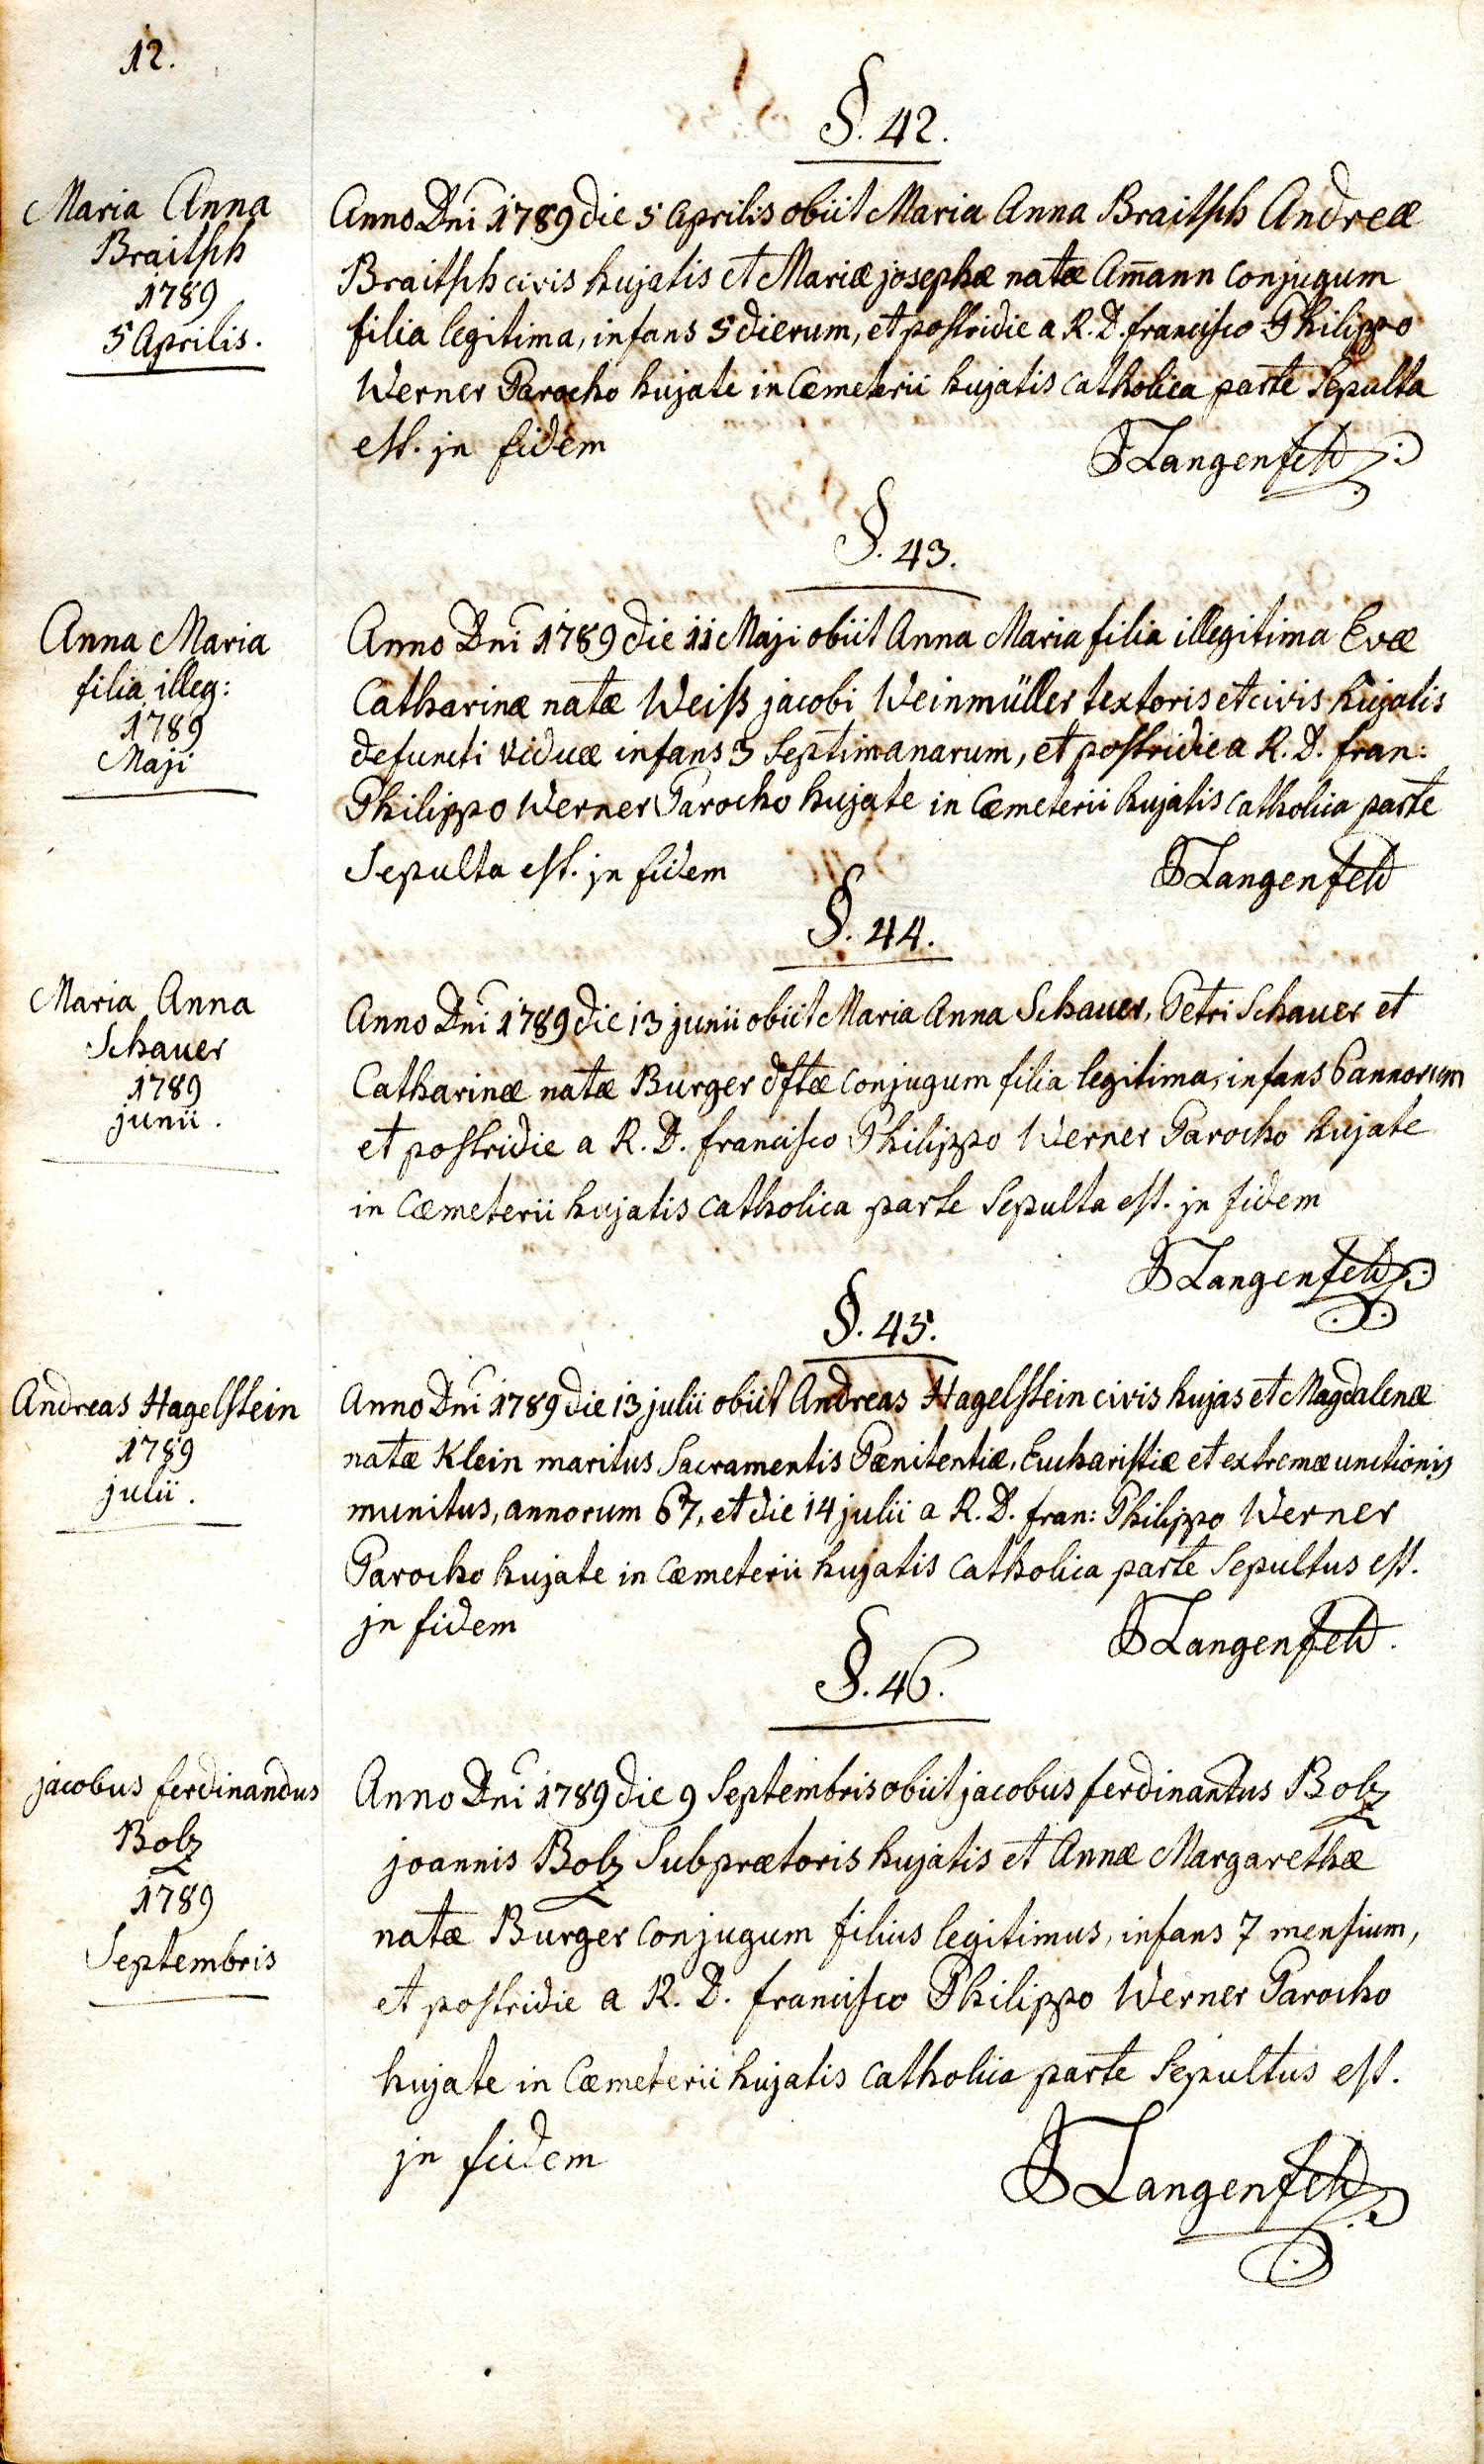 12.
§. 42.
Maria Anna
Braitsch
1789
5 Aprilis.
Anno Dni 1789 die 5 Aprilis obiit Maria Anna Braitsch Andreæ
Braitsch civis hujatis et Mariæ josephæ natæ Am̄ann conjugum
filia legitima, infans 5 dierum, et postridie a R. D. francisco Philippo
Werner Parocho hujate in Cæmeterii hujatis catholica parte Sepulta
est. jn fidem
Langenfeld
§. 43.
Anna Maria
filia illeg:
1789
Maji
Anno Dni 1789 die 11 Maji obiit Anna Maria filia illegitima Evæ
Catharinæ natæ Weiß jacobi Weinmüller textoris et civis hujatis
defuncti viduæ infans 3 Septimanarum, et postridie a R. D. fran:
Philippo Werner Parocho hujate in Cæmeterii hujatis catholica parte
Sepulta est. jn fidem
Langenfeld
§. 44.
Maria Anna
Schauer
1789
junii.
Anno Dni 1789 die 13 junii obiit Maria Anna Schauer, Petri Schauer et
Catharinæ natæ Burger dftæ conjugum filia legitima, infans 6 annorum
et postridie a R. D. francisco Philippo Werner Parocho hujate
in Cæmeterii hujatis catholica parte Sepulta est. jn fidem
Langenfeld
§. 45.
Andreas Hagelstein
1789
julii.
Anno Dni 1789 die 13 julii obiit Andreas Hagelstein civis hujas et Magdalenæ
natæ Klein maritus Sacramentis Pænitentiæ, Eucharistiæ et extremæ unctionis
munitus, annorum 67, et die 14 julii a R. D. fran: Philippo Werner
Parocho hujate in Cæmeterii hujatis catholica parte Sepultus est.
jn fidem
Langenfeld.
§. 46.
jacobus ferdinandus
Bolz
1789
Septembris
Anno Dni 1789 die 9 Septembris obiit jacobus ferdinantus Bolz
joannis Bolz Subprætoris hujatis et Annæ Margarethæ
natæ Burger conjugum filius legitimus, infans 7 mensium,
et postridie a R. D. francisco Philippo Werner Parocho
hujate in Cæmeterii hujatis catholica parte Sepultus est.
jn fidem
Langenfeld